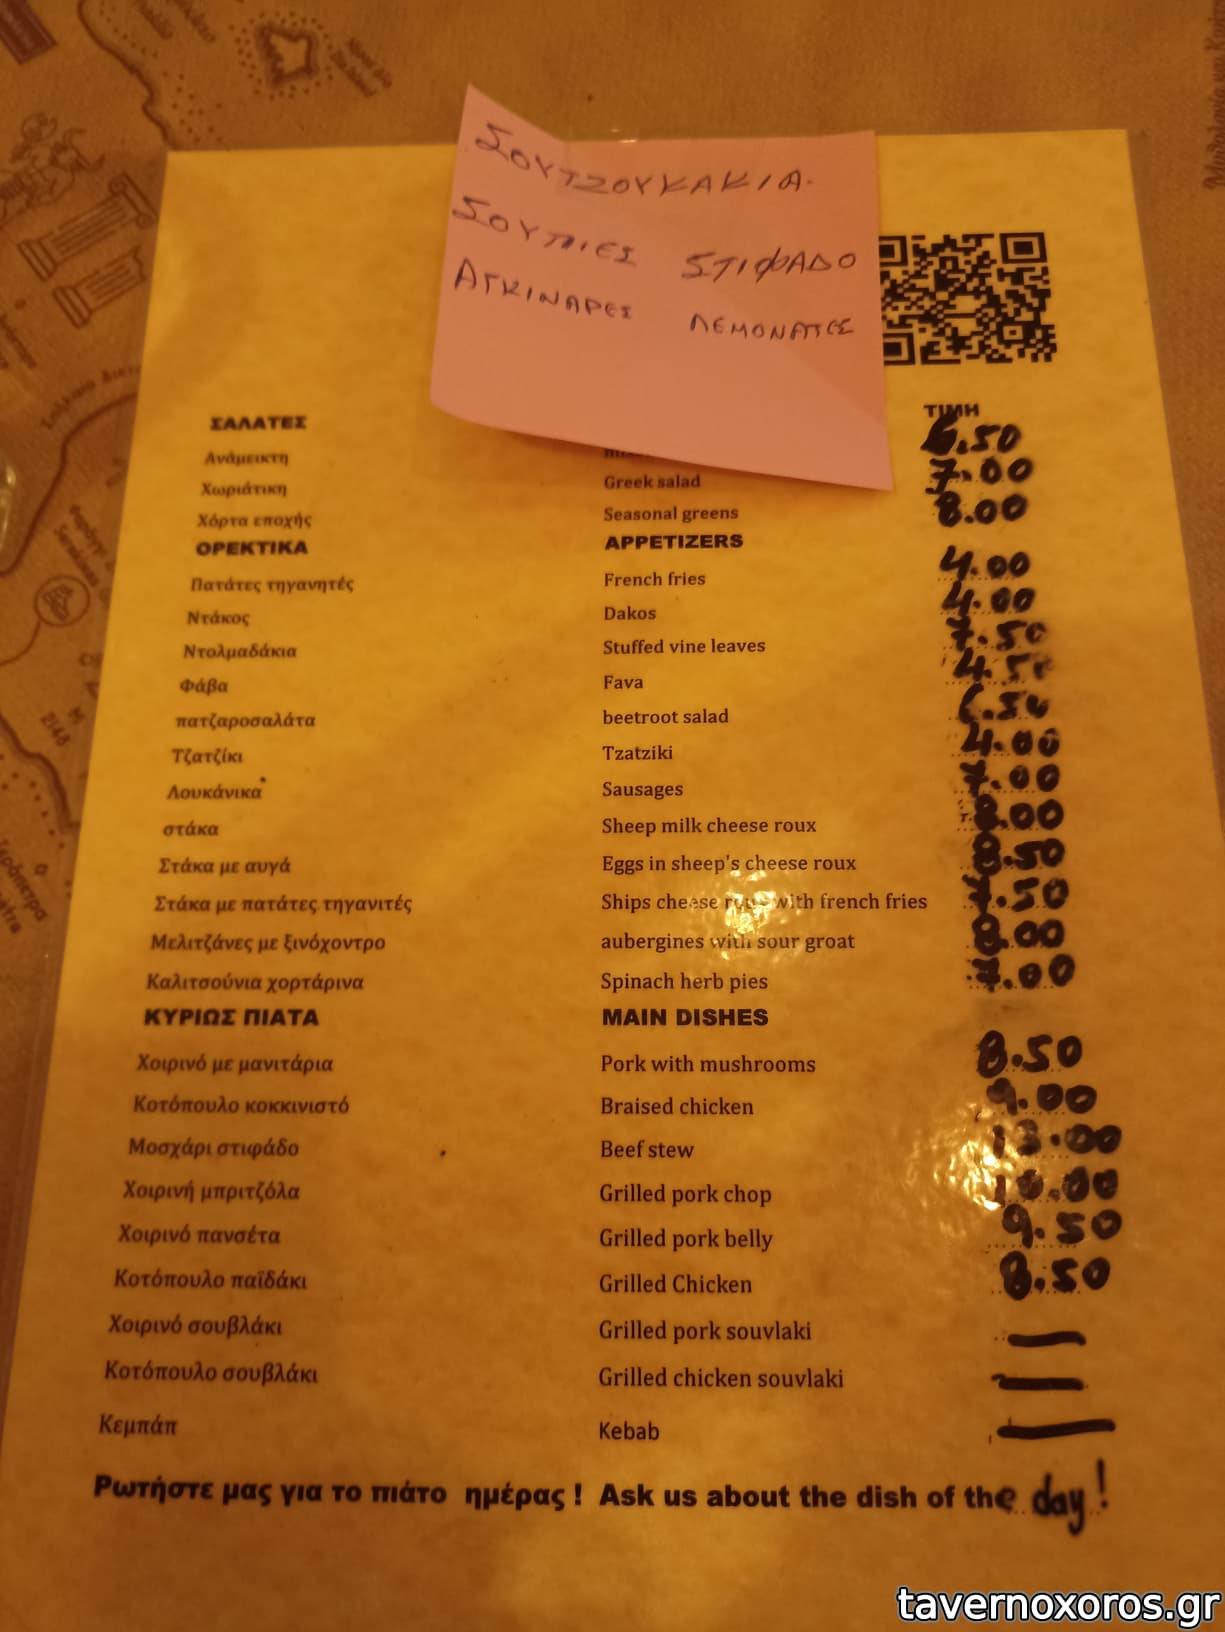 ΣΟΥΤΖΟΥΚΑΚΙΑ.
ΣΟΥΠΙΕΣ ΣΤΙΦΑΔΟ
ΑΓΚΙΝΑΡΕΣ ΛΕΜΟΝΑΤΕΣ
ΣΑΛΑΤΕΣ ΤΙΜΗ
Ανάμεικτη 6.50
Χωριάτικη Greek salad 7.00
Χόρτα εποχής Seasonal greens 8.00
ΟΡΕΚΤΙΚΑ APPETIZERS
Πατάτες τηγανητές French fries 4.00
Ντάκος Dakos 4.00
Ντολμαδάκια Stuffed vine leaves 7.50
Φάβα Fava 4.50
πατζαροσαλάτα beetroot salad
Τζατζίκι Tzatziki 4.00
Λουκάνικα Sausages
στάκα Sheep milk cheese roux
Στάκα με αυγά Eggs in sheep's cheese roux
Στάκα με πατάτες τηγανιτές Ships cheese with french fries
Μελιτζάνες με ξινόχοντρο aubergines with sour groat
Καλιτσούνια χορτάρινα Spinach herb pies
ΚΥΡΙΩΣ ΠΙΑΤΑ MAIN DISHES
Χοιρινό με μανιτάρια Pork with mushrooms 8.50
Κοτόπουλο κοκκινιστό Braised chicken 9.00
Μοσχάρι στιφάδο Beef stew 13.00
Χοιρινή μπριτζόλα Grilled pork chop 10.00
Χοιρινό πανσέτα Grilled pork belly 9.50
Κοτόπουλο παϊδάκι Grilled Chicken 8.50
Χοιρινό σουβλάκι Grilled pork souvlaki
Κοτόπουλο σουβλάκι Grilled chicken souvlaki
Κεμπάπ Kebab
Ρωτήστε μας για το πιάτο ημέρας ! Ask us about the dish of the day !
tavernoxoros.gr